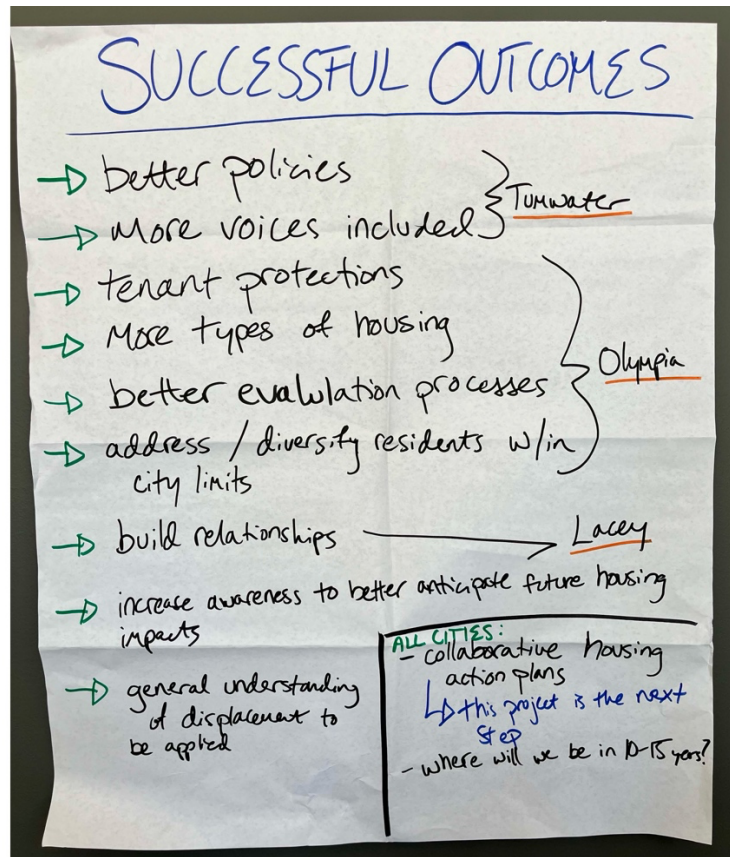 SUCCESSFUL OUTCOMES
better policies
More voices included
Tumwater
tenant protections
More types of housing
better evalulation processes
Olympia
address / diversify residents w/in
city limits
build relationships
Lacey
increase awareness to better anticipate future housing
impacts
general understanding
of displacement to
be applied
ALL CITIES:
- collaborative housing
action plans
this project is the next
step
- where will we be in 10-15 years?